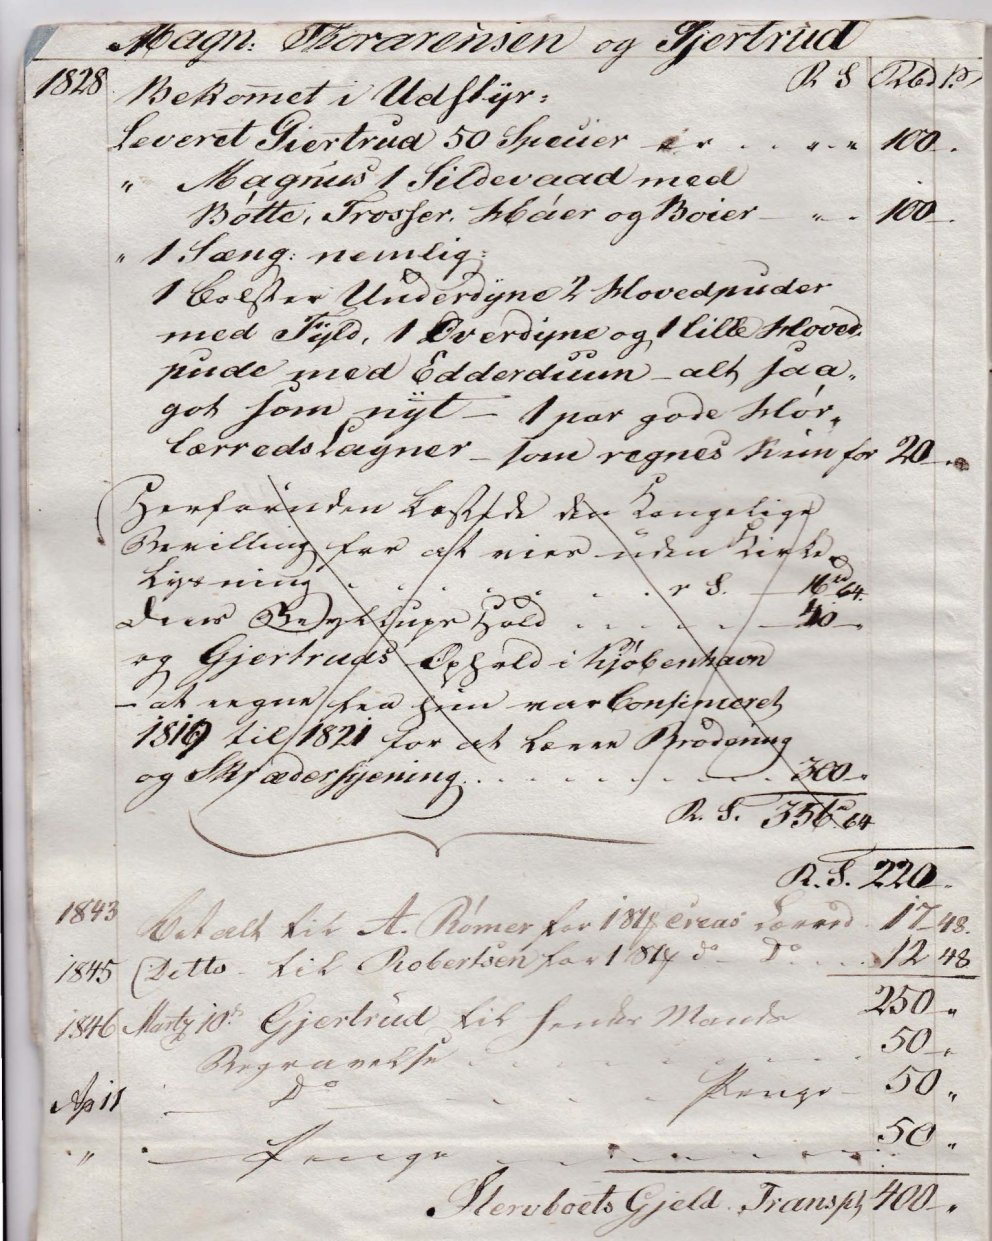 Magn: Thorarensen og Gjertrud
1828 R S Rbd ß
Bekomet i Udstÿr:
Leveret Giertrud 50 Specier 100 .
" Magnus 1 Sildevaad med
Bótte, Trosser, Háer og Boier 100 .
" 1 Sæng: nemlig:
1 Bolster Underdÿne 2 Hovedpuder
med Fÿld, 1 Overdÿne og 1 lille Hoved,
pude med Edderduun – alt saa,
got som nÿt – 1 par gode Hór,
lærreds Lagner – som regnes kun for 20
Herforuden kostede den Kongelige
Bevilling for at vies uden Kirke
Lysning . . . . r S. 16 64.
Deres Bryllups Hold . . . . 40
og Gjertruds Ophold i Kjóbenhavn
– at regne fra hun var Confirmeret
1819 til 1821 for at lære Brodering
og Skrædersÿening . . . . 300 .
R. S. 356 64
R. S. 220 .
1843 Betalt til A. Rømer for 1 Creas Lærred 17 48.
1845 Ditto – til Robertsen for 1 do Do . . . 12 48
250 "
1846 Martz 10de Gjertrud til hendes Mands
Begravelse . . . . 50 "
Ap 11 – Do – Penge – 50 "
" – Penge . . . . 50 "
Stervboets Gjeld Transpt 400 "